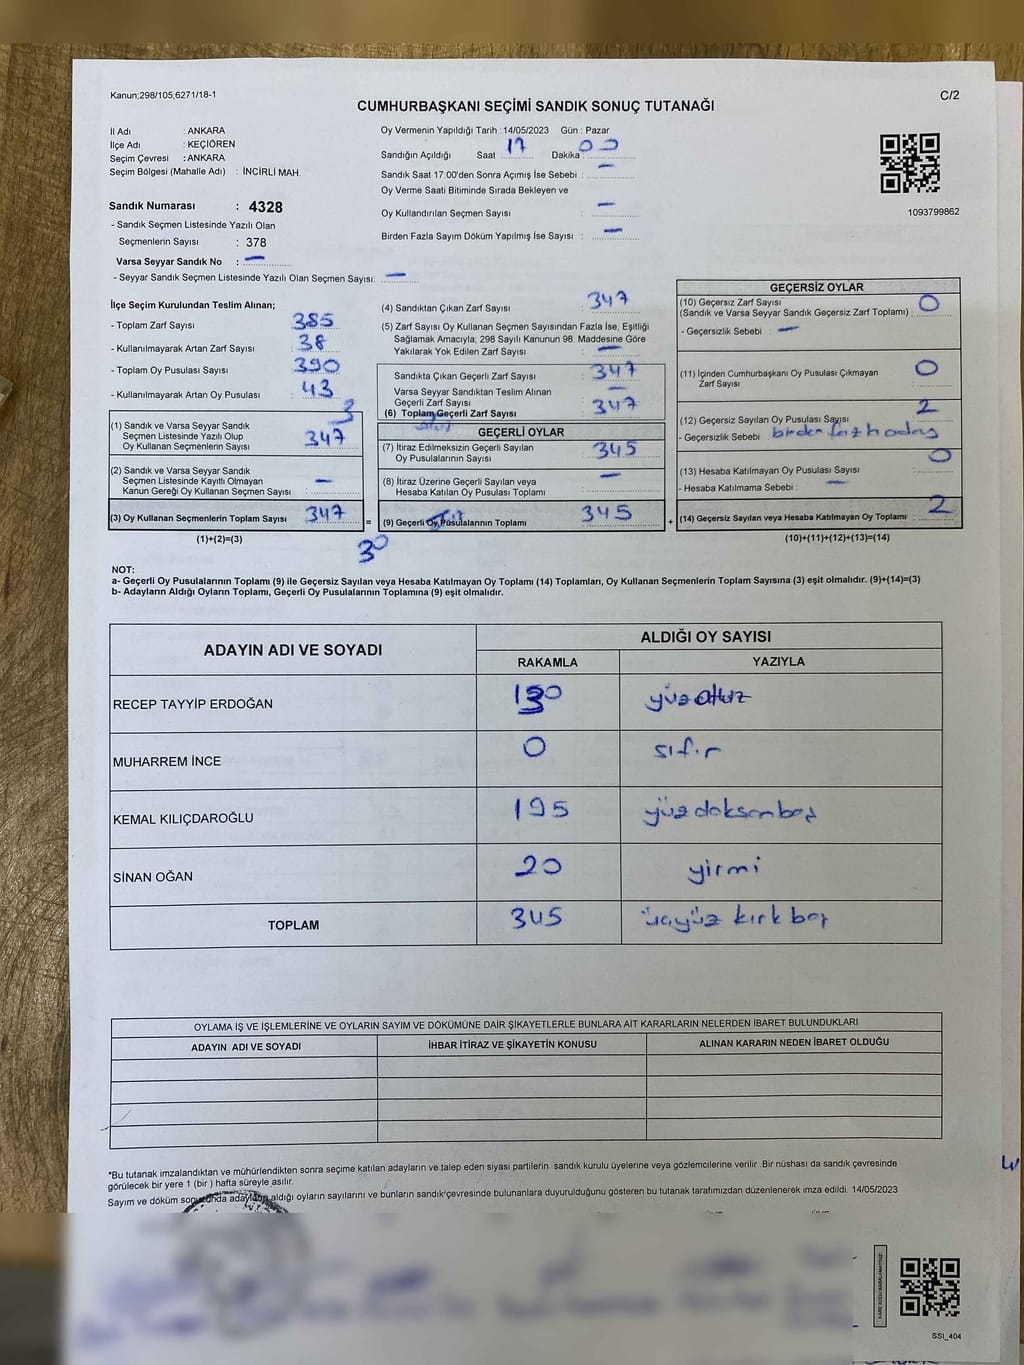 Kanun;298/105,6271/18-1
C/2
CUMHURBAŞKANI SEÇİMİ SANDIK SONUÇ TUTANAĞI
İl Adı : ANKARA
İlçe Adı : KEÇİÖREN
Seçim Çevresi : ANKARA
Seçim Bölgesi (Mahalle Adı) : İNCİRLİ MAH.
Sandık Numarası : 4328
- Sandık Seçmen Listesinde Yazılı Olan
Seçmenlerin Sayısı : 378
Varsa Seyyar Sandık No : —
- Seyyar Sandık Seçmen Listesinde Yazılı Olan Seçmen Sayısı: —
Oy Vermenin Yapıldığı Tarih : 14/05/2023 Gün : Pazar
Sandığın Açıldığı Saat : 17 Dakika : 00
Sandık Saat 17:00'den Sonra Açımış İse Sebebi : —
Oy Verme Saati Bitiminde Sırada Bekleyen ve
Oy Kullandırılan Seçmen Sayısı : —
Birden Fazla Sayım Döküm Yapılmış İse Sayısı : —
1093799862
İlçe Seçim Kurulundan Teslim Alınan;
- Toplam Zarf Sayısı : 385
- Kullanılmayarak Artan Zarf Sayısı : 38
- Toplam Oy Pusulası Sayısı : 390
- Kullanılmayarak Artan Oy Pusulası : 43
3
(1) Sandık ve Varsa Seyyar Sandık
Seçmen Listesinde Yazılı Olup
Oy Kullanan Seçmenlerin Sayısı : 347
(2) Sandık ve Varsa Seyyar Sandık
Seçmen Listesinde Kayıtlı Olmayan
Kanun Gereği Oy Kullanan Seçmen Sayısı : —
(3) Oy Kullanan Seçmenlerin Toplam Sayısı : 347
(1)+(2)=(3)
(4) Sandıktan Çıkan Zarf Sayısı : 347
(5) Zarf Sayısı Oy Kullanan Seçmen Sayısından Fazla İse, Eşitliği
Sağlamak Amacıyla; 298 Sayılı Kanunun 98. Maddesine Göre
Yakılarak Yok Edilen Zarf Sayısı : —
Sandıkta Çıkan Geçerli Zarf Sayısı : 347
Varsa Seyyar Sandıktan Teslim Alınan
Geçerli Zarf Sayısı : —
(6) Toplam Geçerli Zarf Sayısı : 347
GEÇERLİ OYLAR
(7) İtiraz Edilmeksizin Geçerli Sayılan
Oy Pusulalarının Sayısı : 345
(8) İtiraz Üzerine Geçerli Sayılan veya
Hesaba Katılan Oy Pusulası Toplamı : —
= (9) Geçerli Oy Pusulalarının Toplamı : 345 +
30
GEÇERSİZ OYLAR
(10) Geçersiz Zarf Sayısı
(Sandık ve Varsa Seyyar Sandık Geçersiz Zarf Toplamı) : 0
- Geçersizlik Sebebi : —
(11) İçinden Cumhurbaşkanı Oy Pusulası Çıkmayan
Zarf Sayısı : 0
(12) Geçersiz Sayılan Oy Pusulası Sayısı : 2
- Geçersizlik Sebebi : birden fazla
(13) Hesaba Katılmayan Oy Pusulası Sayısı : 0
- Hesaba Katılmama Sebebi : —
(14) Geçersiz Sayılan veya Hesaba Katılmayan Oy Toplamı : 2
(10)+(11)+(12)+(13)=(14)
NOT:
a- Geçerli Oy Pusulalarının Toplamı (9) ile Geçersiz Sayılan veya Hesaba Katılmayan Oy Toplamı (14) Toplamları, Oy Kullanan Seçmenlerin Toplam Sayısına (3) eşit olmalıdır. (9)+(14)=(3)
b- Adayların Aldığı Oyların Toplamı, Geçerli Oy Pusulalarının Toplamına (9) eşit olmalıdır.
ADAYIN ADI VE SOYADI
ALDIĞI OY SAYISI
RAKAMLA YAZIYLA
RECEP TAYYİP ERDOĞAN 130 yüzotuz
MUHARREM İNCE 0 sıfır
KEMAL KILIÇDAROĞLU 195 yüzdoksanbeş
SİNAN OĞAN 20 yirmi
TOPLAM 345 üçyüz kırk beş
OYLAMA İŞ VE İŞLEMLERİNE VE OYLARIN SAYIM VE DÖKÜMÜNE DAİR ŞİKAYETLERLE BUNLARA AİT KARARLARIN NELERDEN İBARET BULUNDUKLARI
ADAYIN ADI VE SOYADI İHBAR İTİRAZ VE ŞİKAYETİN KONUSU ALINAN KARARIN NEDEN İBARET OLDUĞU
*Bu tutanak imzalandıktan ve mühürlendikten sonra seçime katılan adayların ve talep eden siyasi partilerin sandık kurulu üyelerine veya gözlemcilerine verilir .Bir nüshası da sandık çevresinde
görülecek bir yere 1 (bir ) hafta süreyle asılır.
Sayım ve döküm sonucunda adayların aldığı oyların sayılarını ve bunların sandık çevresinde bulunanlara duyurulduğunu gösteren bu tutanak tarafımızdan düzenlenerek imza edildi. 14/05/2023
SSI_404